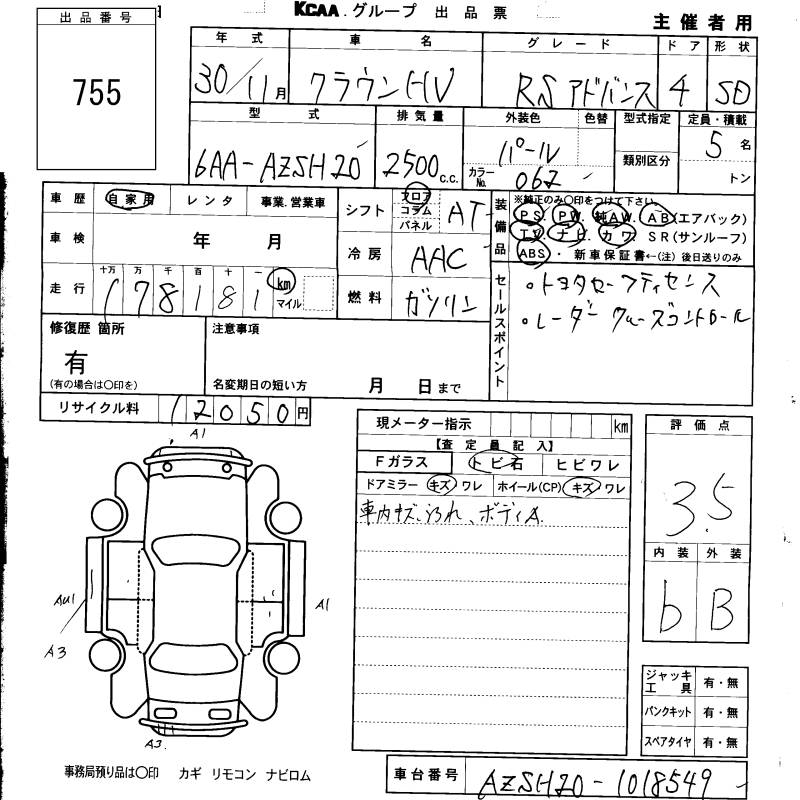 KCAA.グループ 出品票
主催者用
出品番号
755
年式 車名 グレード ドア 形状
30/11月 クラウンHV RSアドバンス 4 SD
型式 排気量 外装色 色替 型式指定 定員・積載
6AA-AZSH20 2500c.c. パール 5名
カラーNo. 062 類別区分 トン
車歴 自家用 レンタ 事業.営業車
シフト フロア コラム パネル AT
車検 年 月
冷房 AAC
十万 万 千 百 十 一
走行 178181 km マイル
燃料 ガソリン
装備品 ※純正のみ○印をつけて下さい
PS. PW. 純AW. AB(エアバック)
TV. ナビ. カワ SR(サンルーフ)
ABS・新車保証書←(注)後日送りのみ
セールスポイント
。トヨタセーフティセンス
。レーダークルーズコントロール
修復歴 箇所
有
(有の場合は○印を)
注意事項
名変期日の短い方 月 日まで
リサイクル料 12050円
現メーター指示 km
【査定員記入】
Fガラス トビ石 ヒビワレ
ドアミラー キズ ワレ ホイール(CP) キズ ワレ
車内キズ、汚れ、ボディA
評価点
3.5
内装 外装
b B
A1
AU1
A3
A1
A3.
ジャッキ工具 有・無
パンクキット 有・無
スペアタイヤ 有・無
事務局預り品は○印 カギ リモコン ナビロム
車台番号 AZSH20-1018549